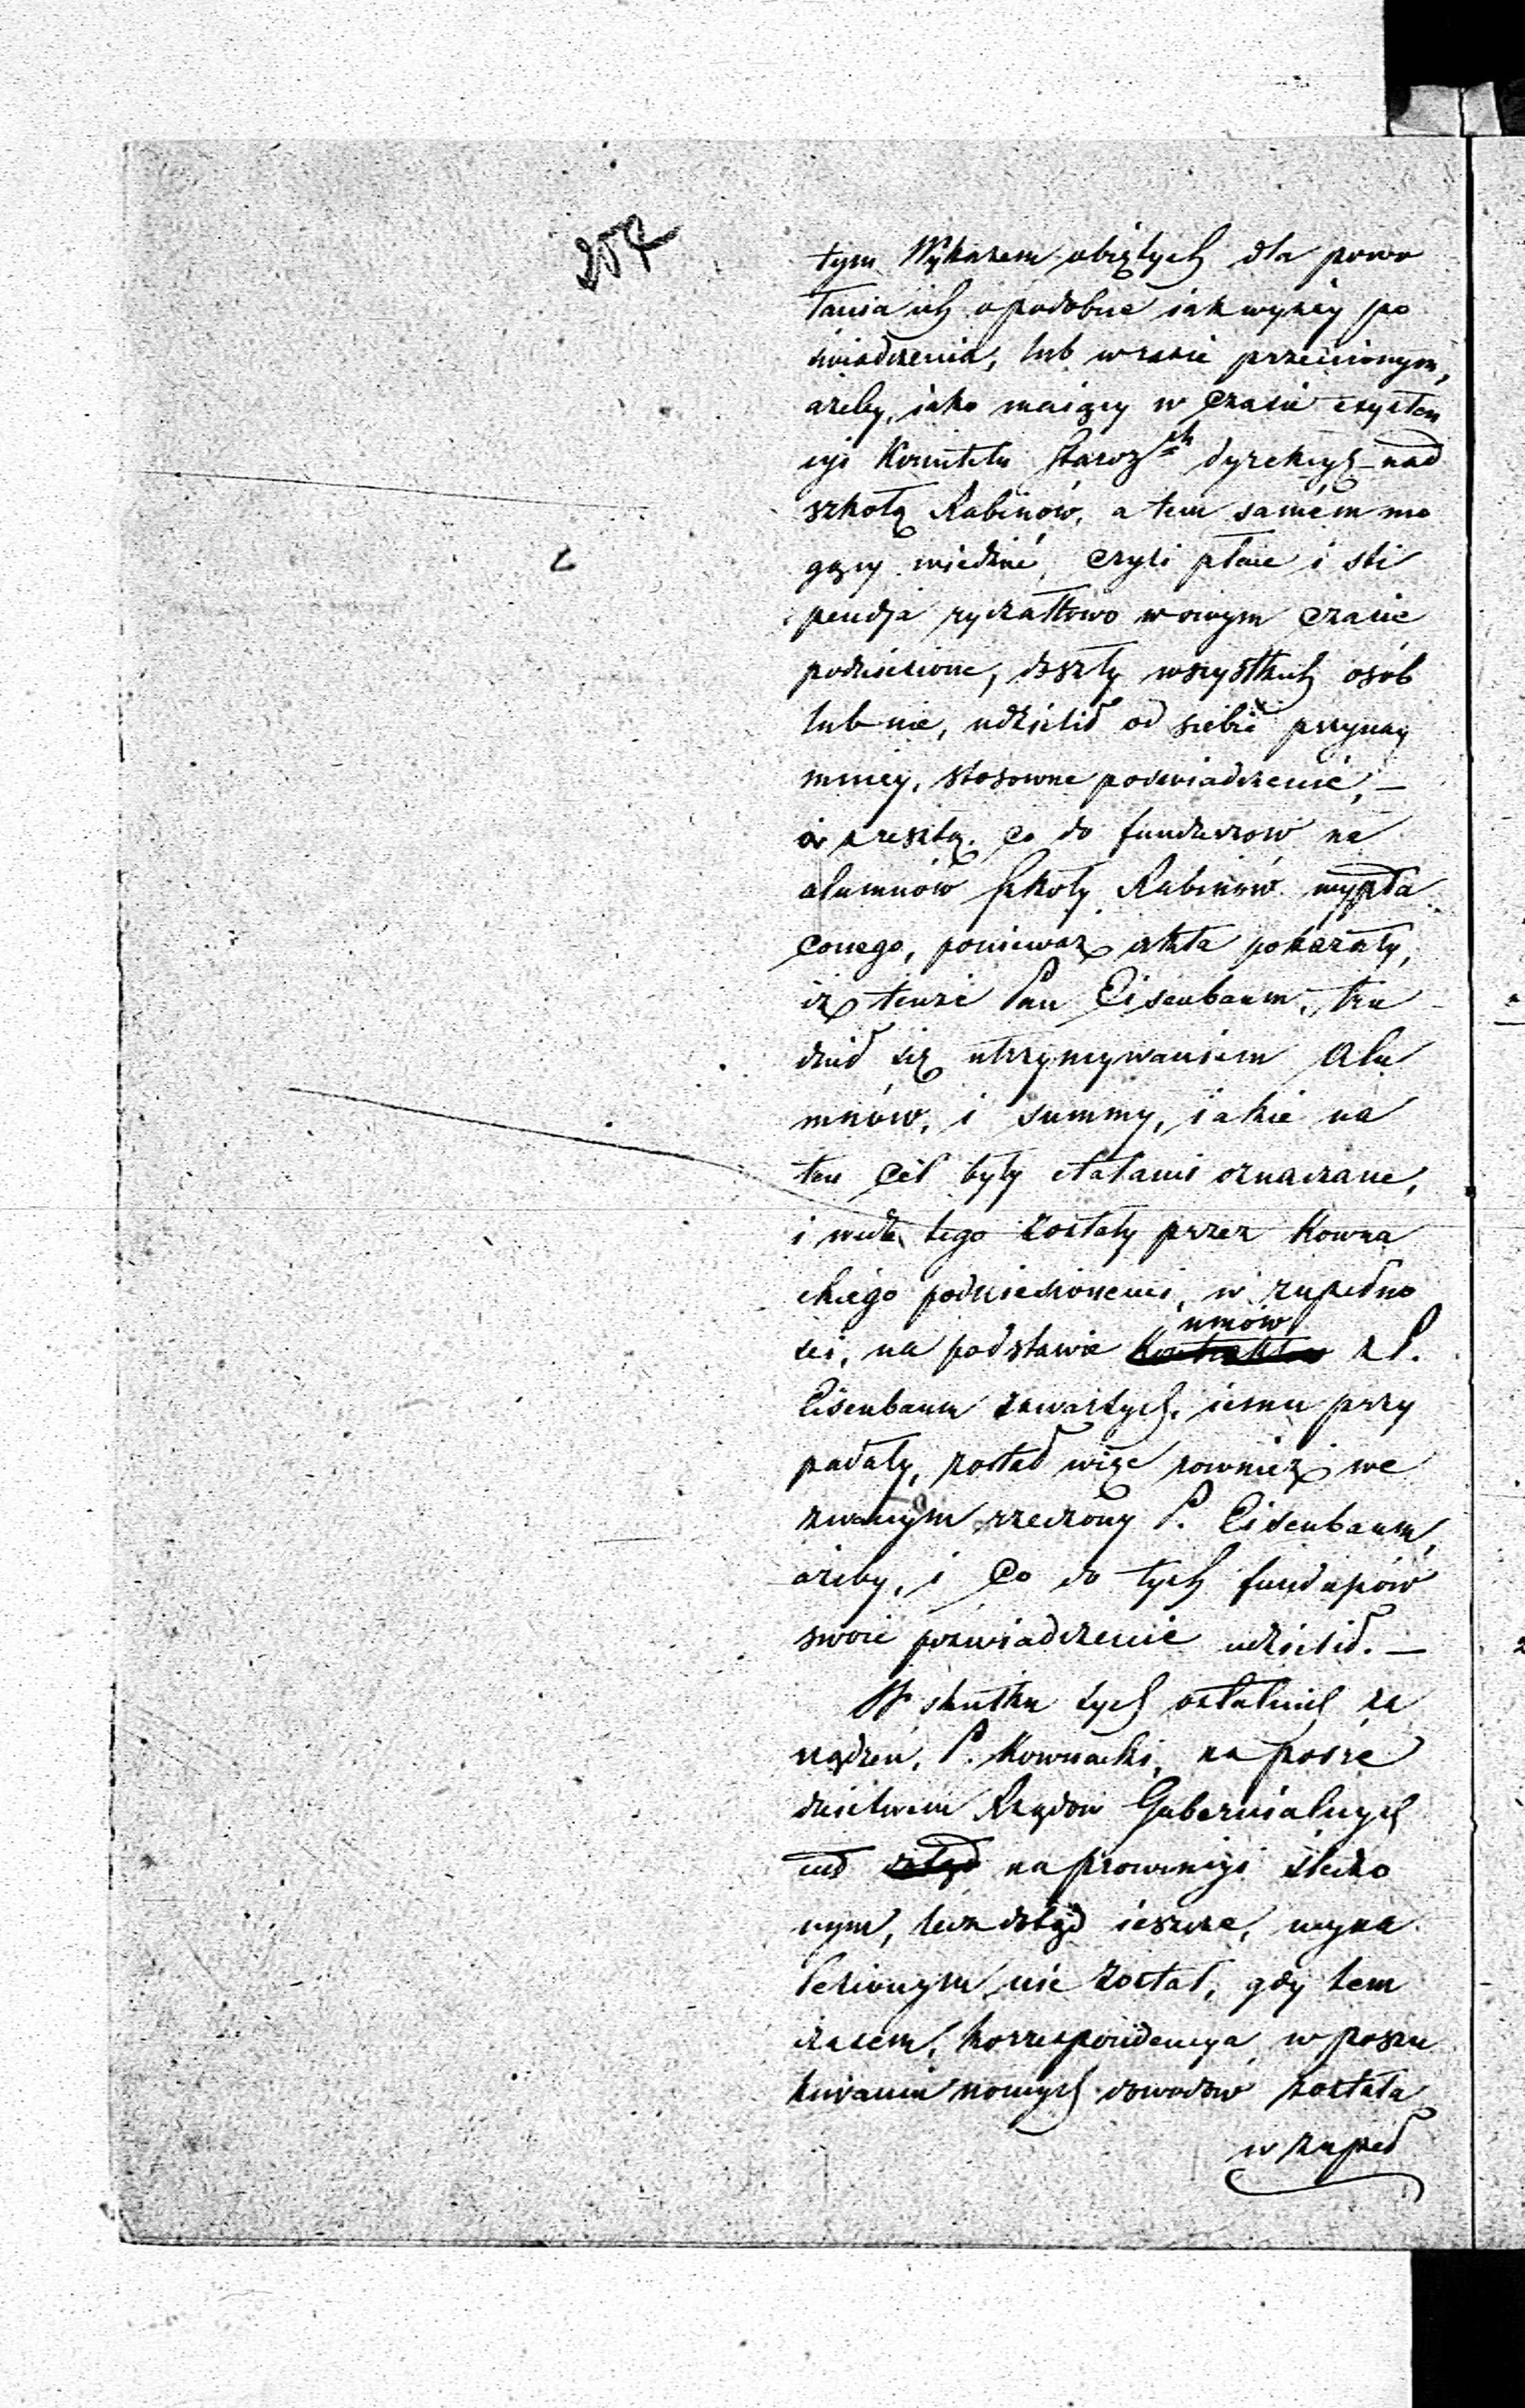 257
tym Wykazem obiętych dla powo
łania ich o podobne iak wyżéy po
świadczenia, lub w razie przeciwnym,
ażeby, iako maiący w czasie exysten
cyi Komitetu Staroz<sup>ch</sup> dyrekcyą nad
szkołą Rabinów, a tem samém mo
gący wiedzieć, czyli płace i sti
pendja ryczałtowo w owym czasie
podniesione, doszły wszystkich osób
lub nie, udzielił od siebie przynay
mniey, stosowne poświadczenie, —
a zresztą co do funduszow na
alumnów Szkoły Rabinów wypła
conego, ponieważ akta pokazały,
iż tenże Pan Eisenbaum, tru
dnił się utrzymywaniem Alu
mnów, i summy, iakie na
ten cel były etatami oznaczane,
i wedle tego zostały przez Kowna
ckiego podniesionemi, w zupełno
ści, na podstawie umów z P.
Eisenbaum zawartych, iemu przy
padały, został więc rownież we
zwanym rzeczony P. Eisenbaum,
ażeby, i co do tych funduszów
swoie poświadczenie udzielił. —
W skutku tych ostatnich za
rządzeń, P. Kownacki, za pośre
dnictwem Rządow Gubernialnych
na prowincyi śledzo
nym, lecz dotąd ieszcze, wyna
lezionym nie został, gdy tem
czasem, korrespondencya w poszu
kiwaniu nowych dowodow została
w zupeł